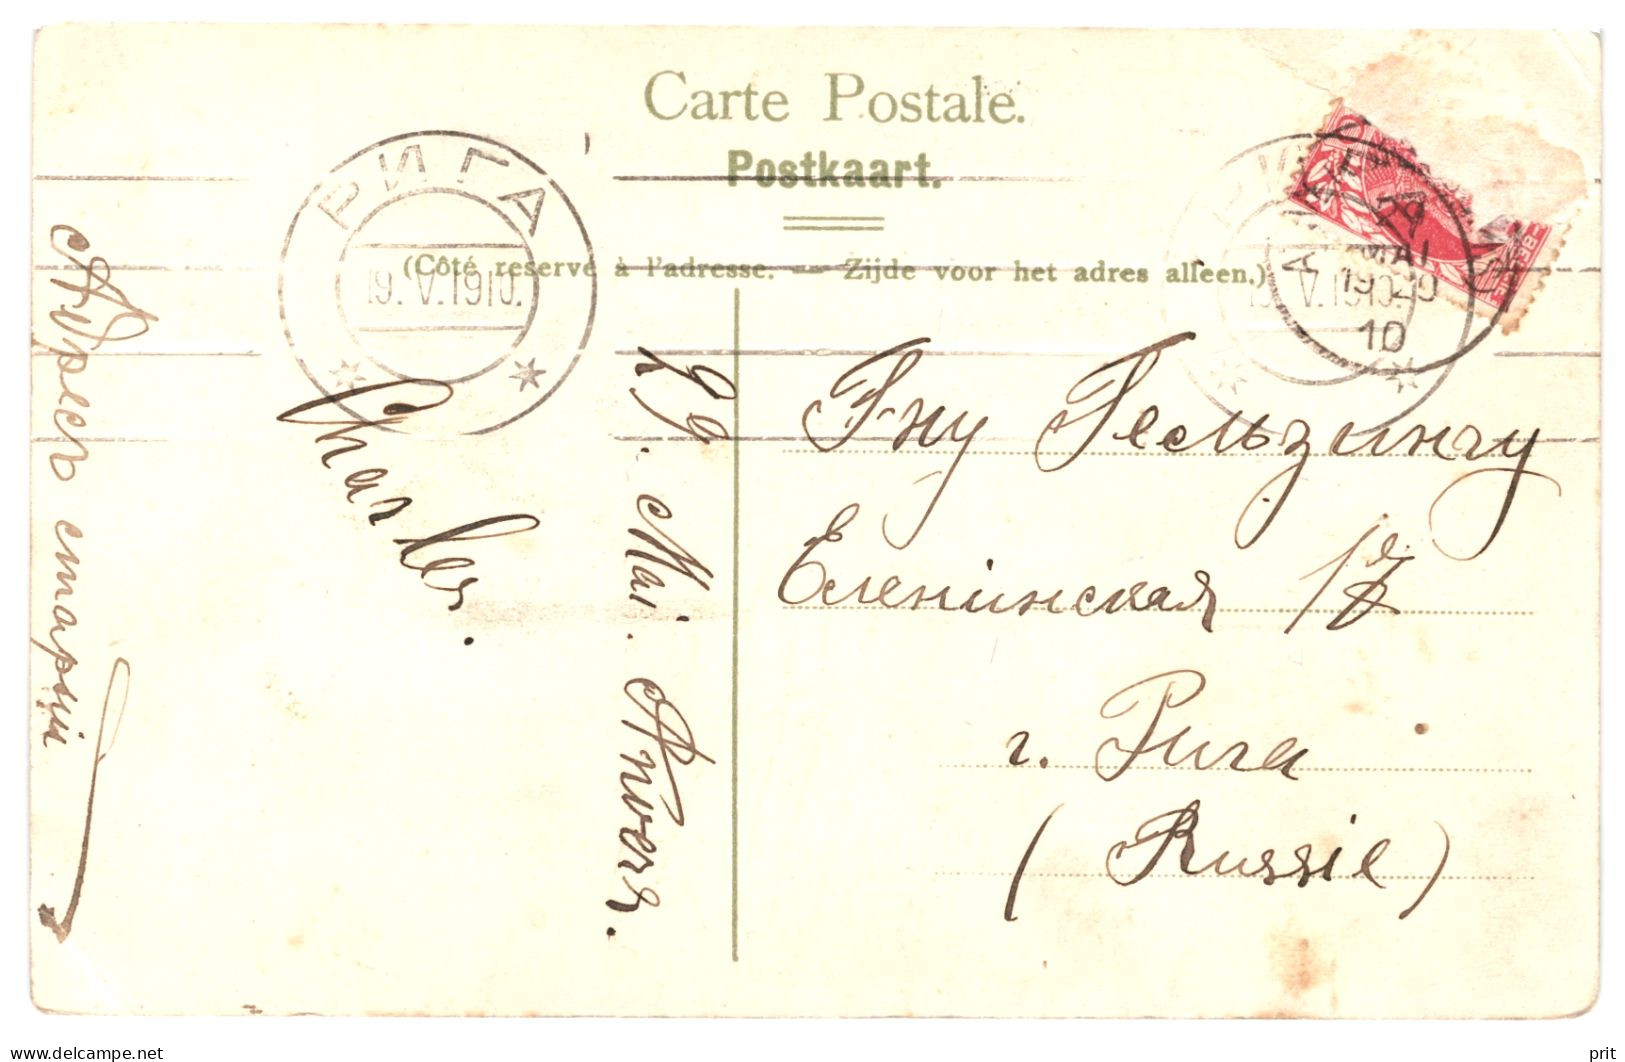 Carte Postale.
Postkaart.
(Côté reservé à l'adresse. — Zijde voor het adres alleen.)
РИГА
19.V.1910.
29
MAI
19-20
10
Г-ну Гельзингу
Еленинская 17
г. Рига
(Russie)
29. Mai. Anvers.
Charles.
Адрест старый
delcampe.net
prit